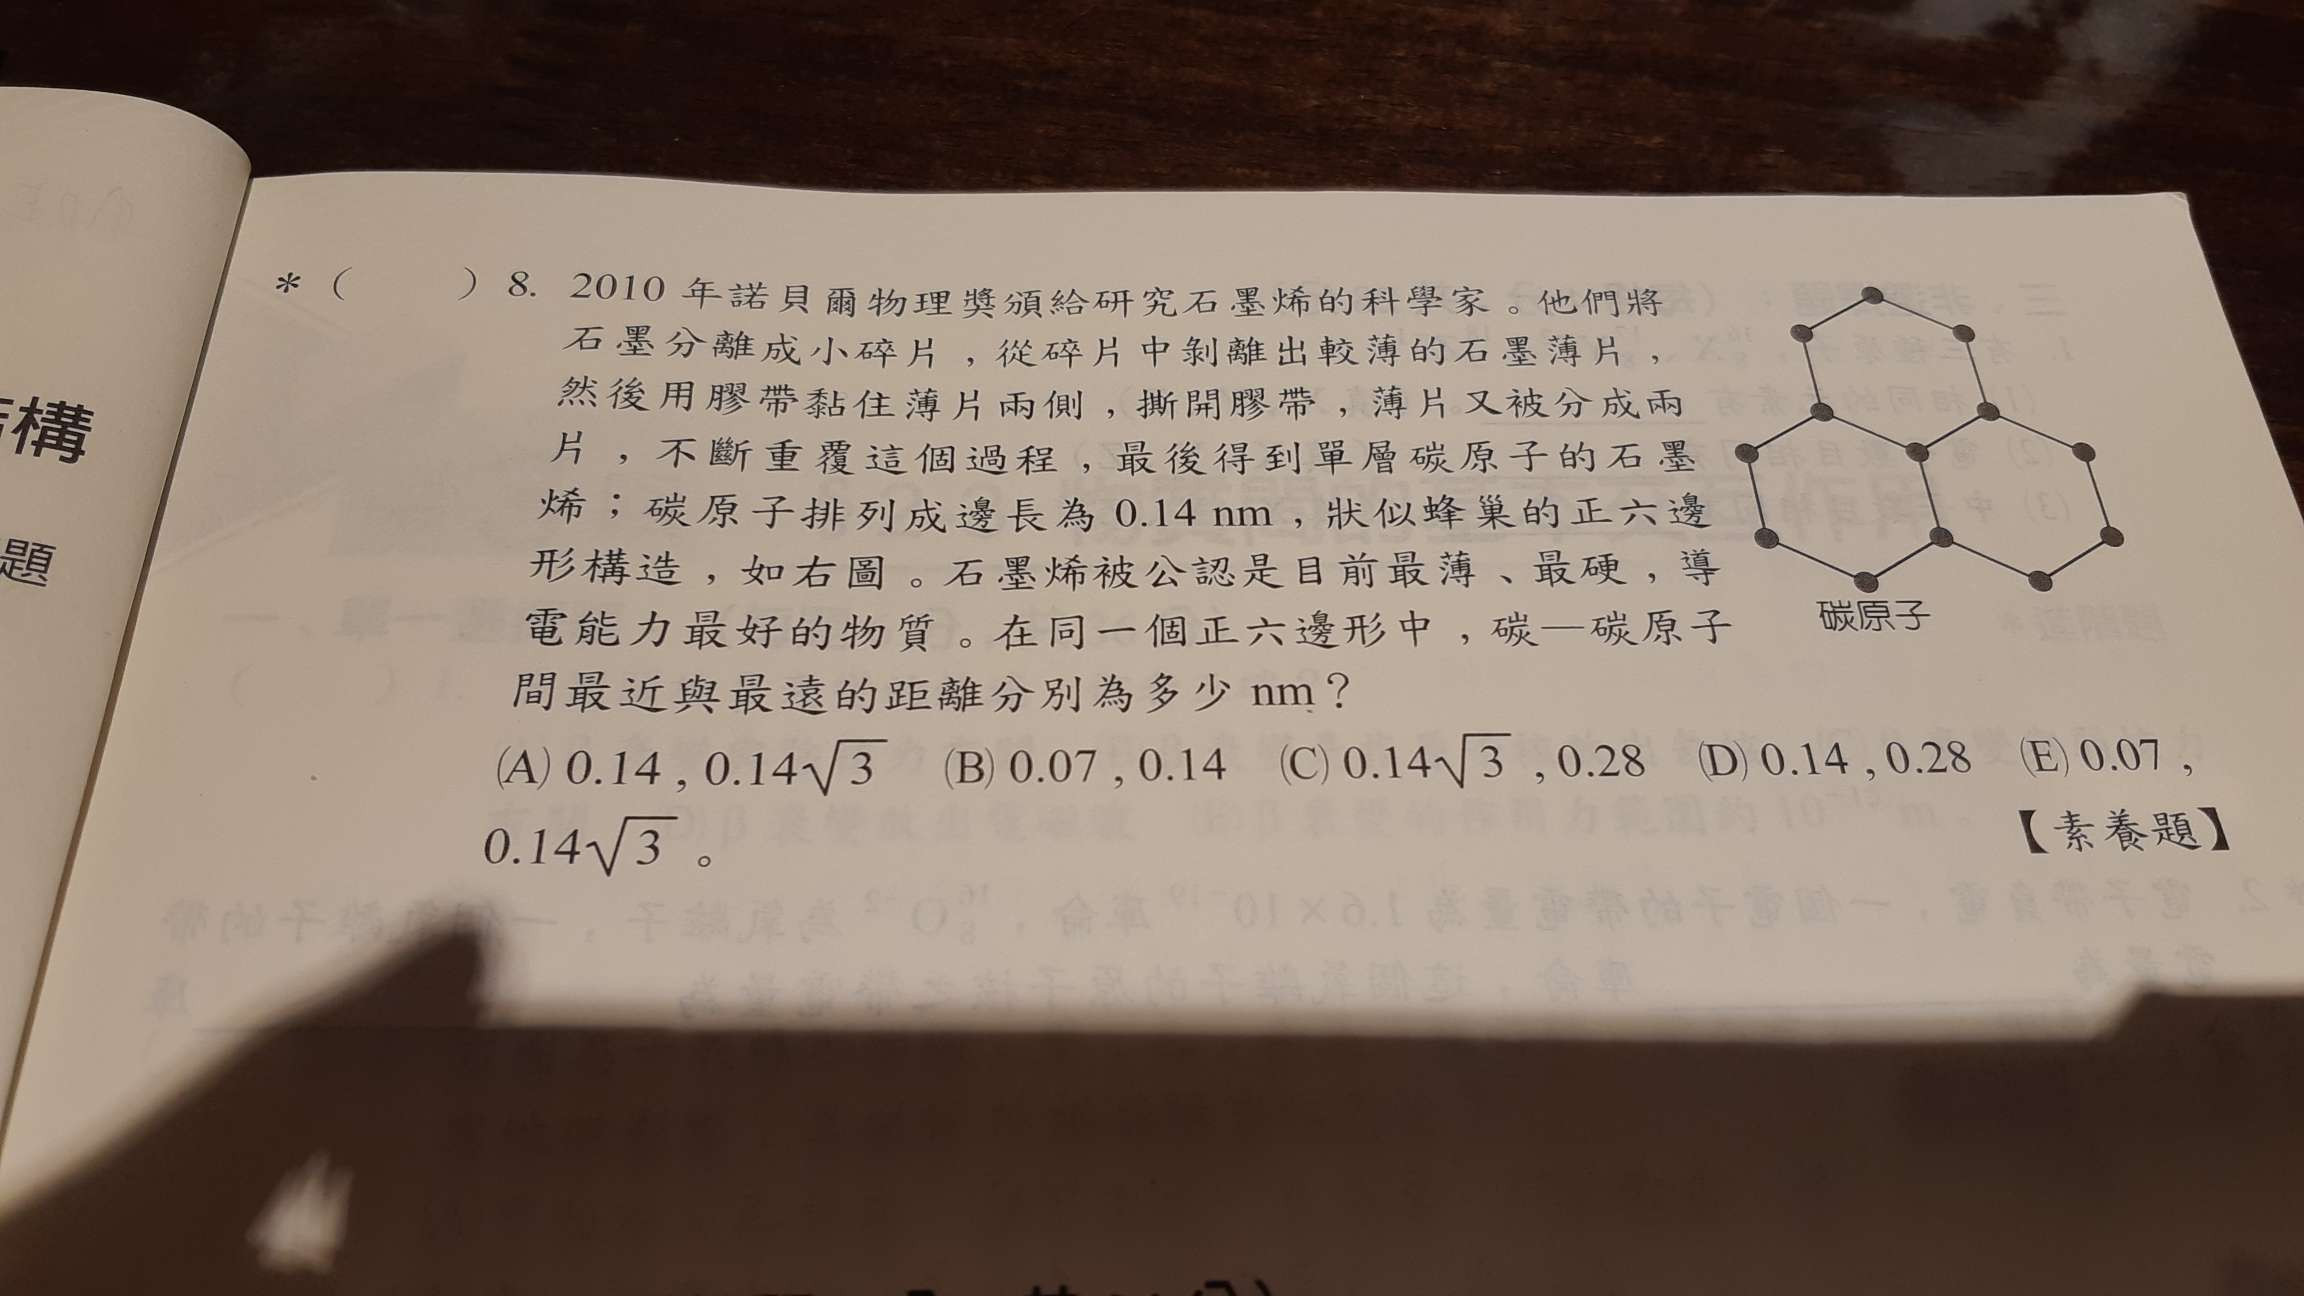 構
題
*（　　）8. 2010 年諾貝爾物理獎頒給研究石墨烯的科學家。他們將
石墨分離成小碎片，從碎片中剝離出較薄的石墨薄片，
然後用膠帶黏住薄片兩側，撕開膠帶，薄片又被分成兩
片，不斷重覆這個過程，最後得到單層碳原子的石墨
烯；碳原子排列成邊長為 0.14 nm，狀似蜂巢的正六邊
形構造，如右圖。石墨烯被公認是目前最薄、最硬，導
電能力最好的物質。在同一個正六邊形中，碳—碳原子
間最近與最遠的距離分別為多少 nm？
碳原子
(A) 0.14，0.14√3　(B) 0.07，0.14　(C) 0.14√3，0.28　(D) 0.14，0.28　(E) 0.07，
0.14√3。　【素養題】